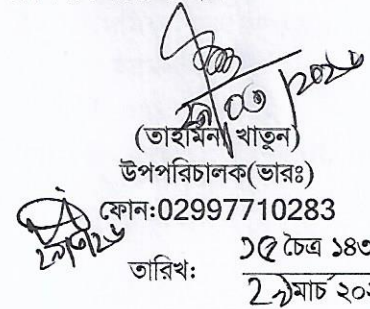 ২৯/০৩/২০২৬
(তাহমিনা খাতুন)
উপপরিচালক(ভারঃ)
ফোন:02997710283
২৯/৩/২৬
তারিখ: ১৫ চৈত্র ১৪৩
২৯মার্চ ২০২